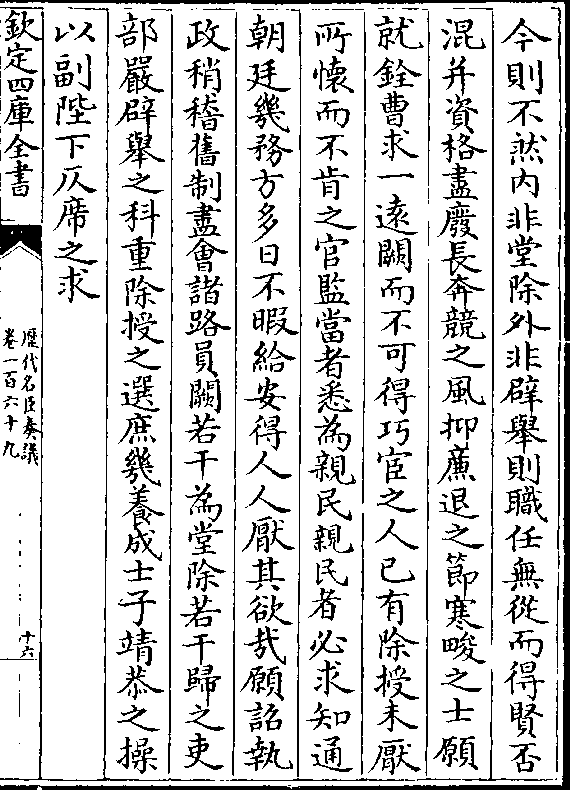 今則不然内非堂除外非辟舉則職任無從而得賢否
混并資格盡廢長奔競之風抑亷退之節寒畯之士願
就銓曹求一遠闕而不可得巧宦之人已有除授未厭
所懐而不肯之官監當者悉為親民親民者必求知通
朝廷幾務方多日不暇給安得人人厭其欲㢤願詔執
政稍稽舊制盡會諸路員闕若干為堂除若干歸之吏
部嚴辟舉之科重除授之選庶幾養成士子靖恭之操
以副陛下仄席之求
欽定四庫全書
歴代名臣奏議
卷一百六十九
十六